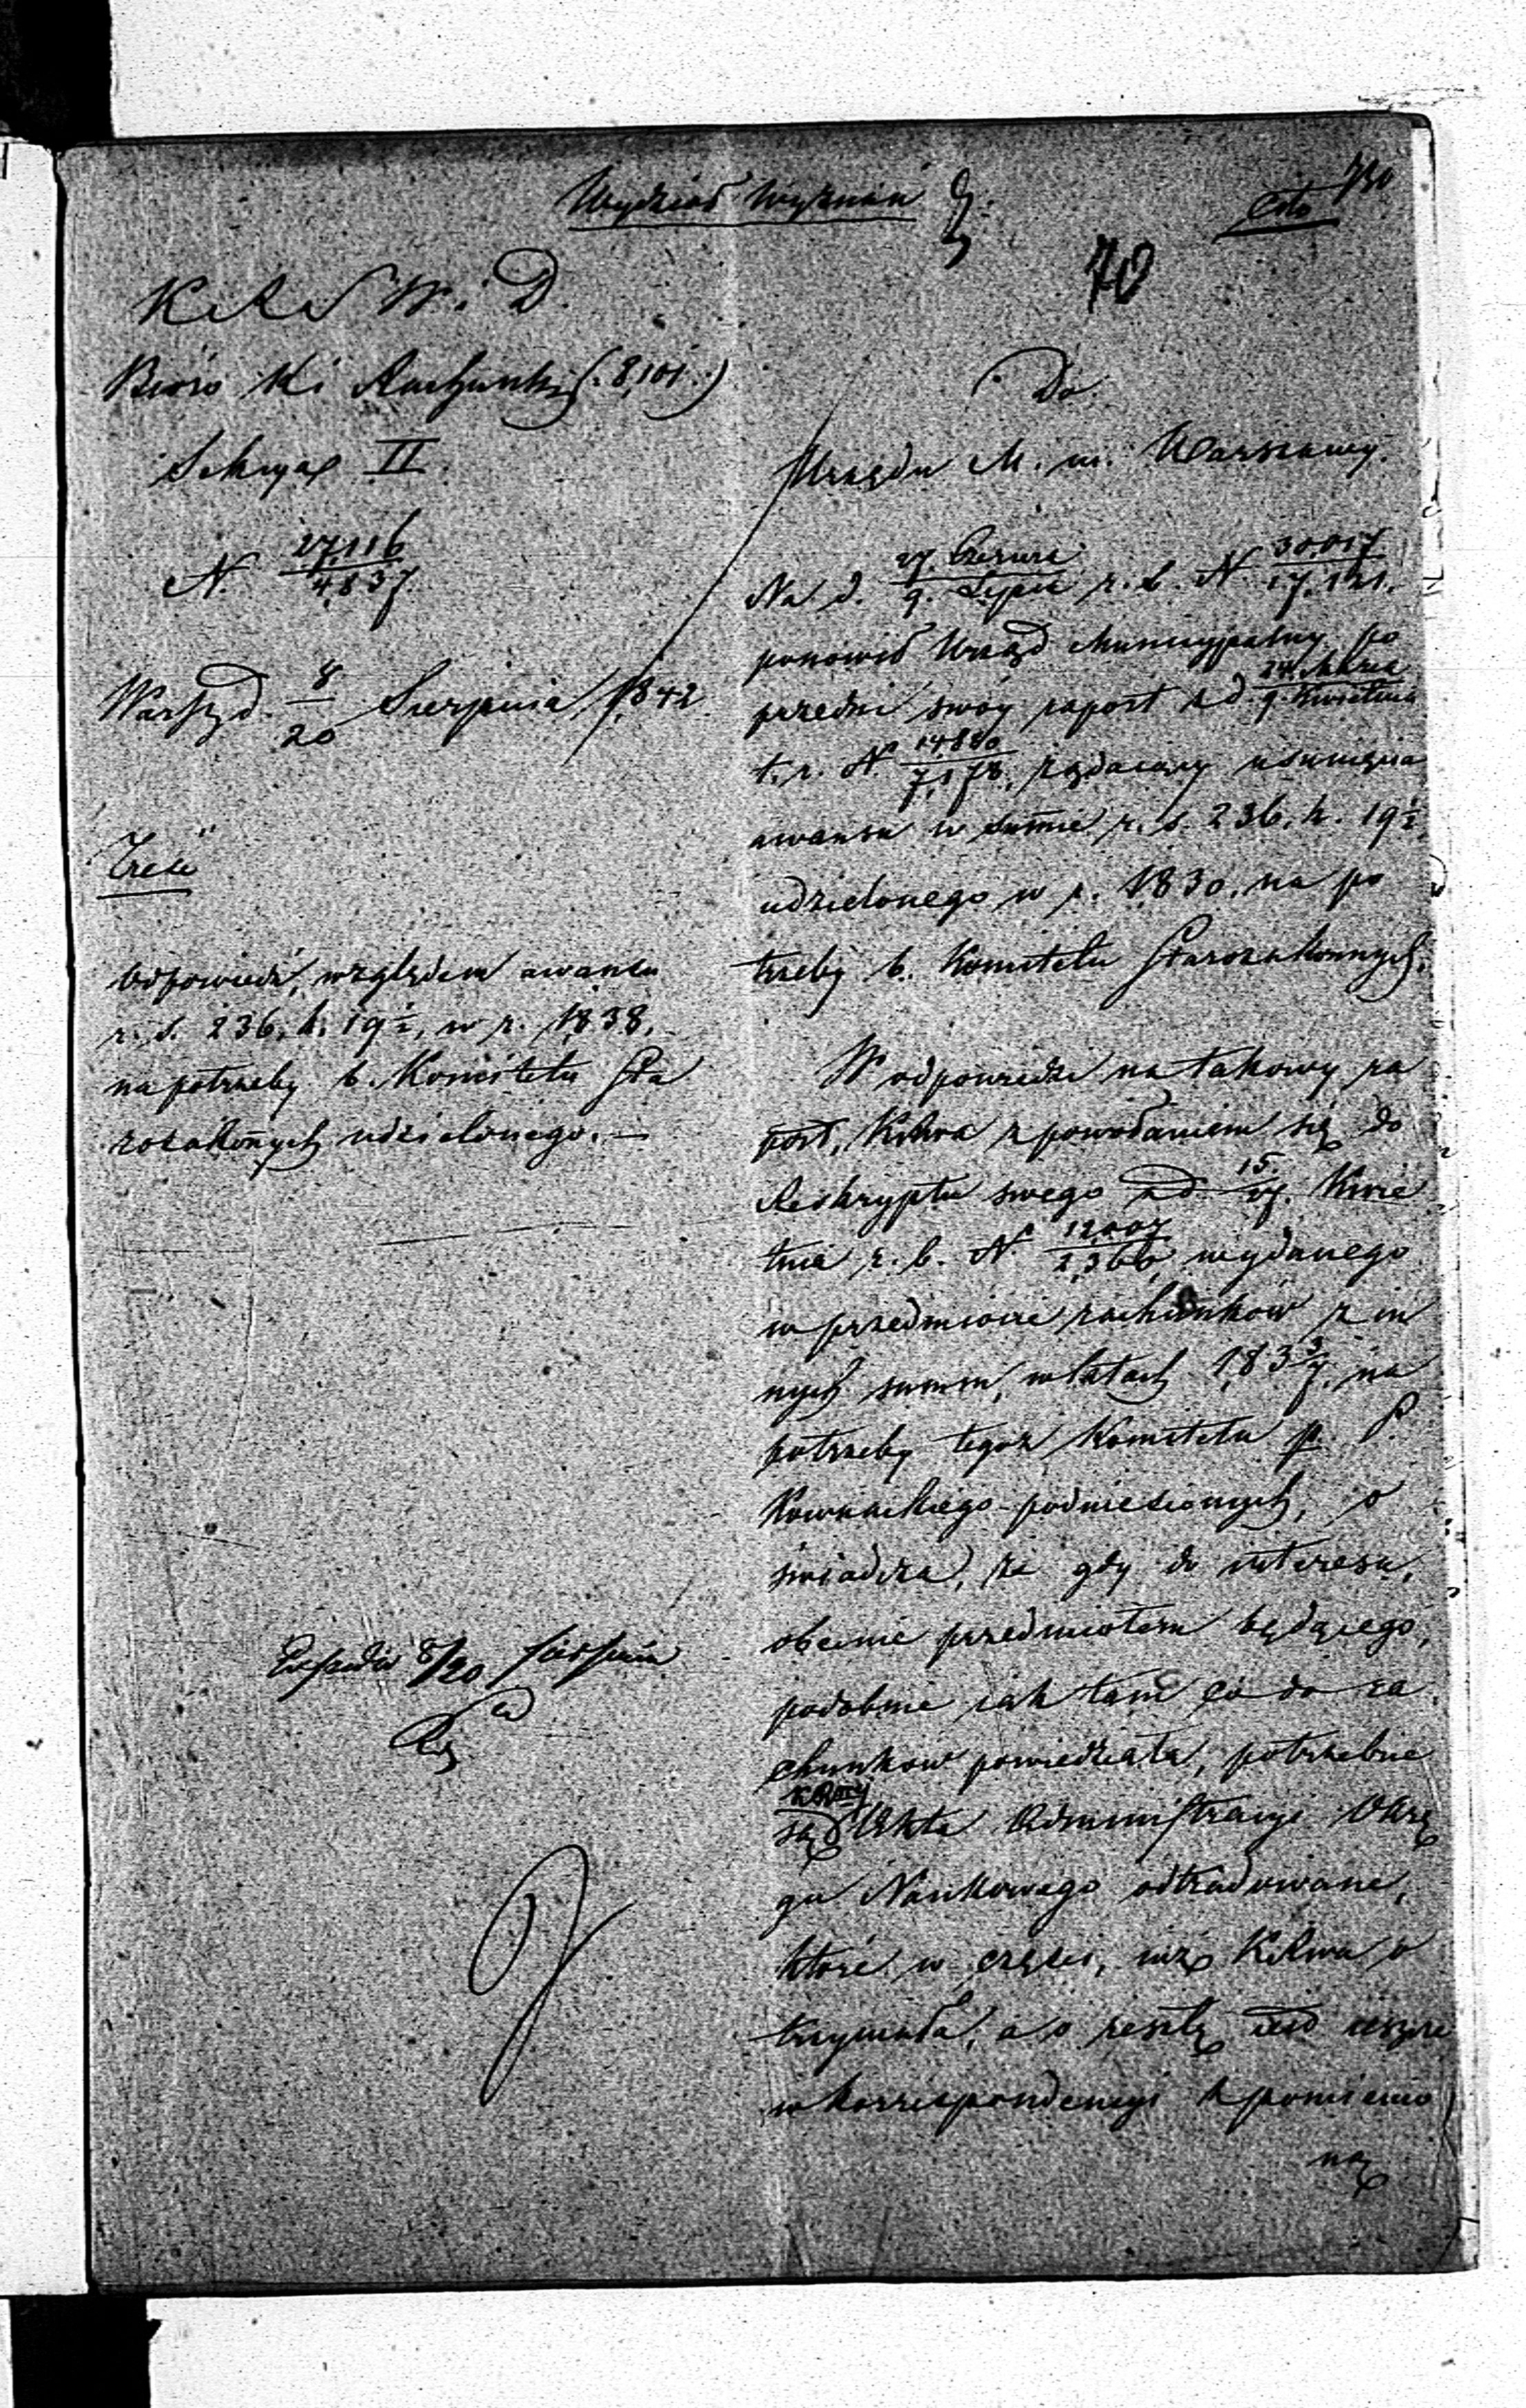 Wydział Wyznań
cito
70
K R S W i D.
Biuro Kż Rachunk: (:8,101.:)
Sekcya II.
N. 27,116/4,837.
Warsz. d. 8/20 Sierpnia 1842
Treść
Odpowiedź, względem awansu
r. s. 236, k. 19½, w r. 1838,
na potrzeby b. Komitetu Sta
rozakonnych udzielonego. —
8/20 Sierpnia
Do
Urzędu M. m. Warszawy.
Na d. 27. Czerwca/9. Lipca r. b. N. 30017/17,121.
ponowił Urząd Municypalny po
przedni swóy raport z d. 24. Marca/9. Kwietnia
t. r. N. 14,880/7,178, żądaiący usunięcia
awansu w summie r. s. 236, k. 19½
udzielonego w r. 1830. na po
trzeby b. Komitetu Starozakonnych.
W odpowiedzi na takowy ra
port, K Rwa z powołaniem się do
Reskryptu swego z d. 15./27. Kwie
tnia r. b. N. 12,007/2,366, wydanego
w przedmiocie rachunków z in
nych summ, w latach 183 3/7, na
potrzeby tegoż Komitetu p. P.
podniesionych, o
świadcza, że gdy do interesu,
obecnie przedmiotem będącego,
podobnie iak tam co do ra
chunkow powiedziała, potrzebne
są Akta Administracyi Okrę
gu Naukowego odtradowane,
które w części, iuż K Rwa o
trzymała, a o resztę iest ieszcze
w korrespondencyi z pomienio
ną